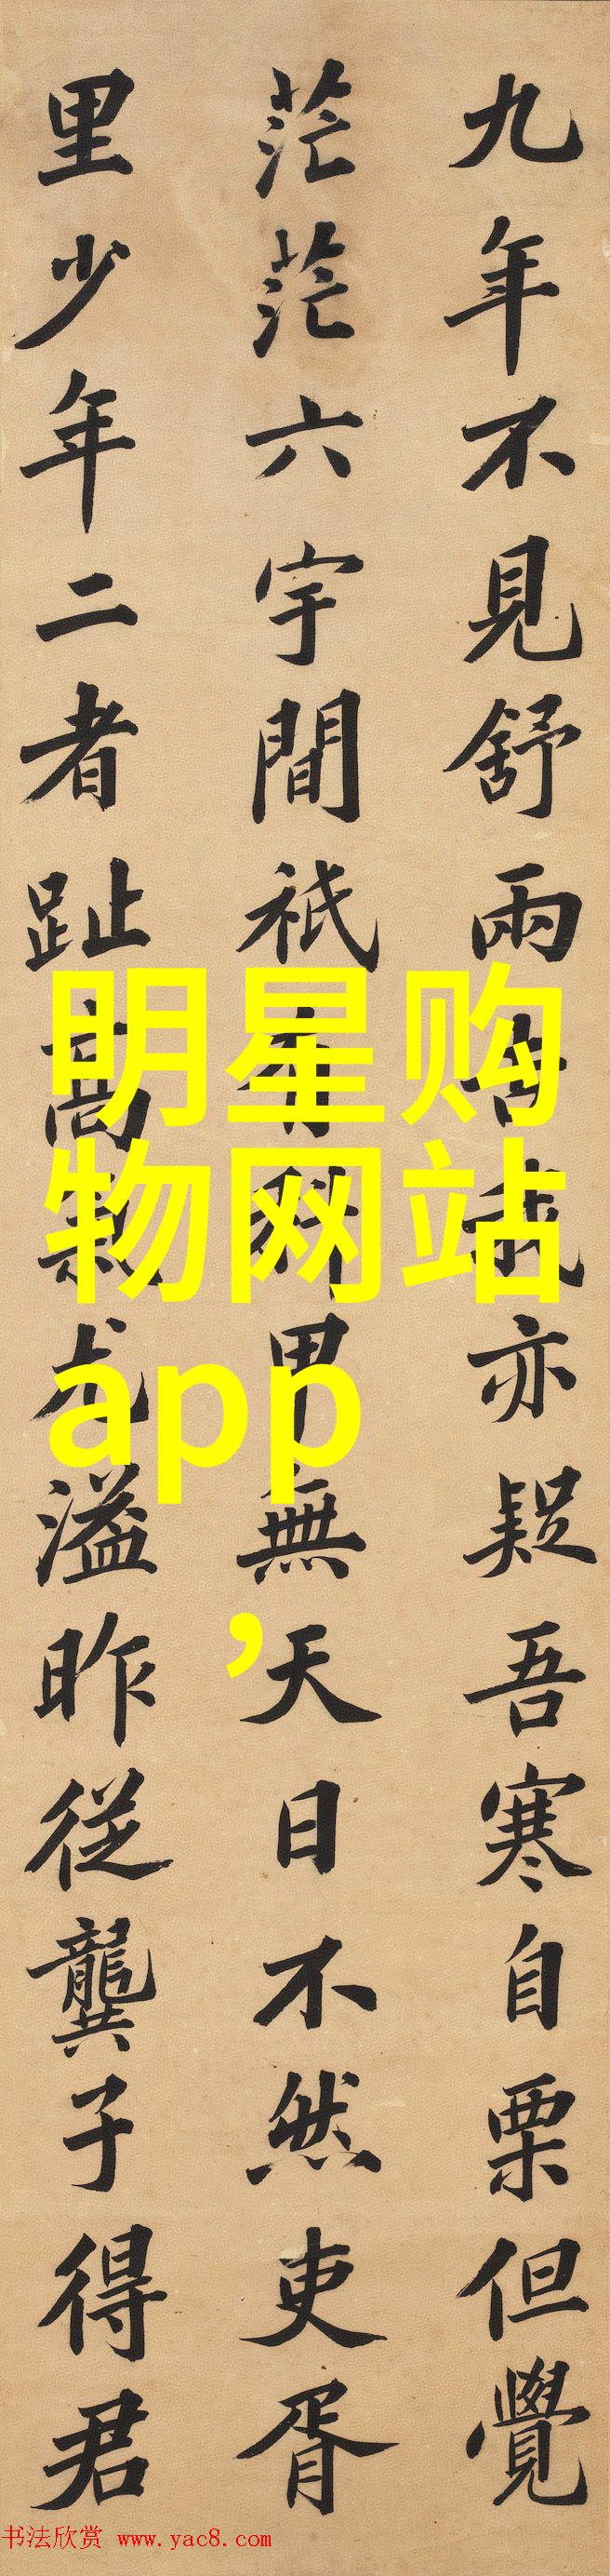 九年不見舒兩我亦疑吾寒自栗但覺
茫茫六宇間祇有科甲無天日不然吏胥
里少年二者趾高氣尤溢昨從龔子得君
明星购
物网站
app
，
书法欣赏 www.yac8.com